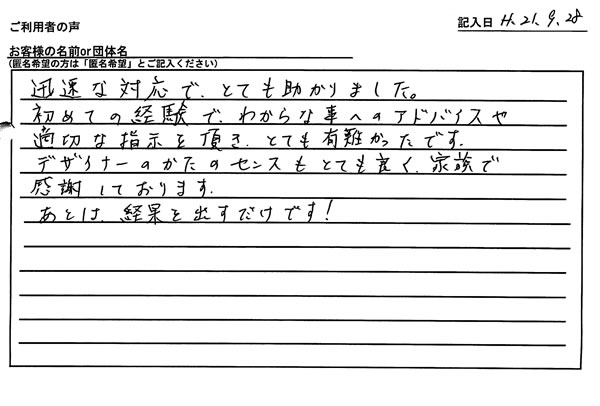 ご利用者の声
記入日 H.21.9.28
お客様の名前or団体名
(匿名希望の方は「匿名希望」とご記入ください)
迅速な対応で、とても助かりました。
初めての経験で、わからな事へのアドバイスや
適切な指示を頂き、とても有難かったです。
デザイナーのかたのセンスもとても良く、家族で
感謝しております。
あとは、経果を出すだけです!